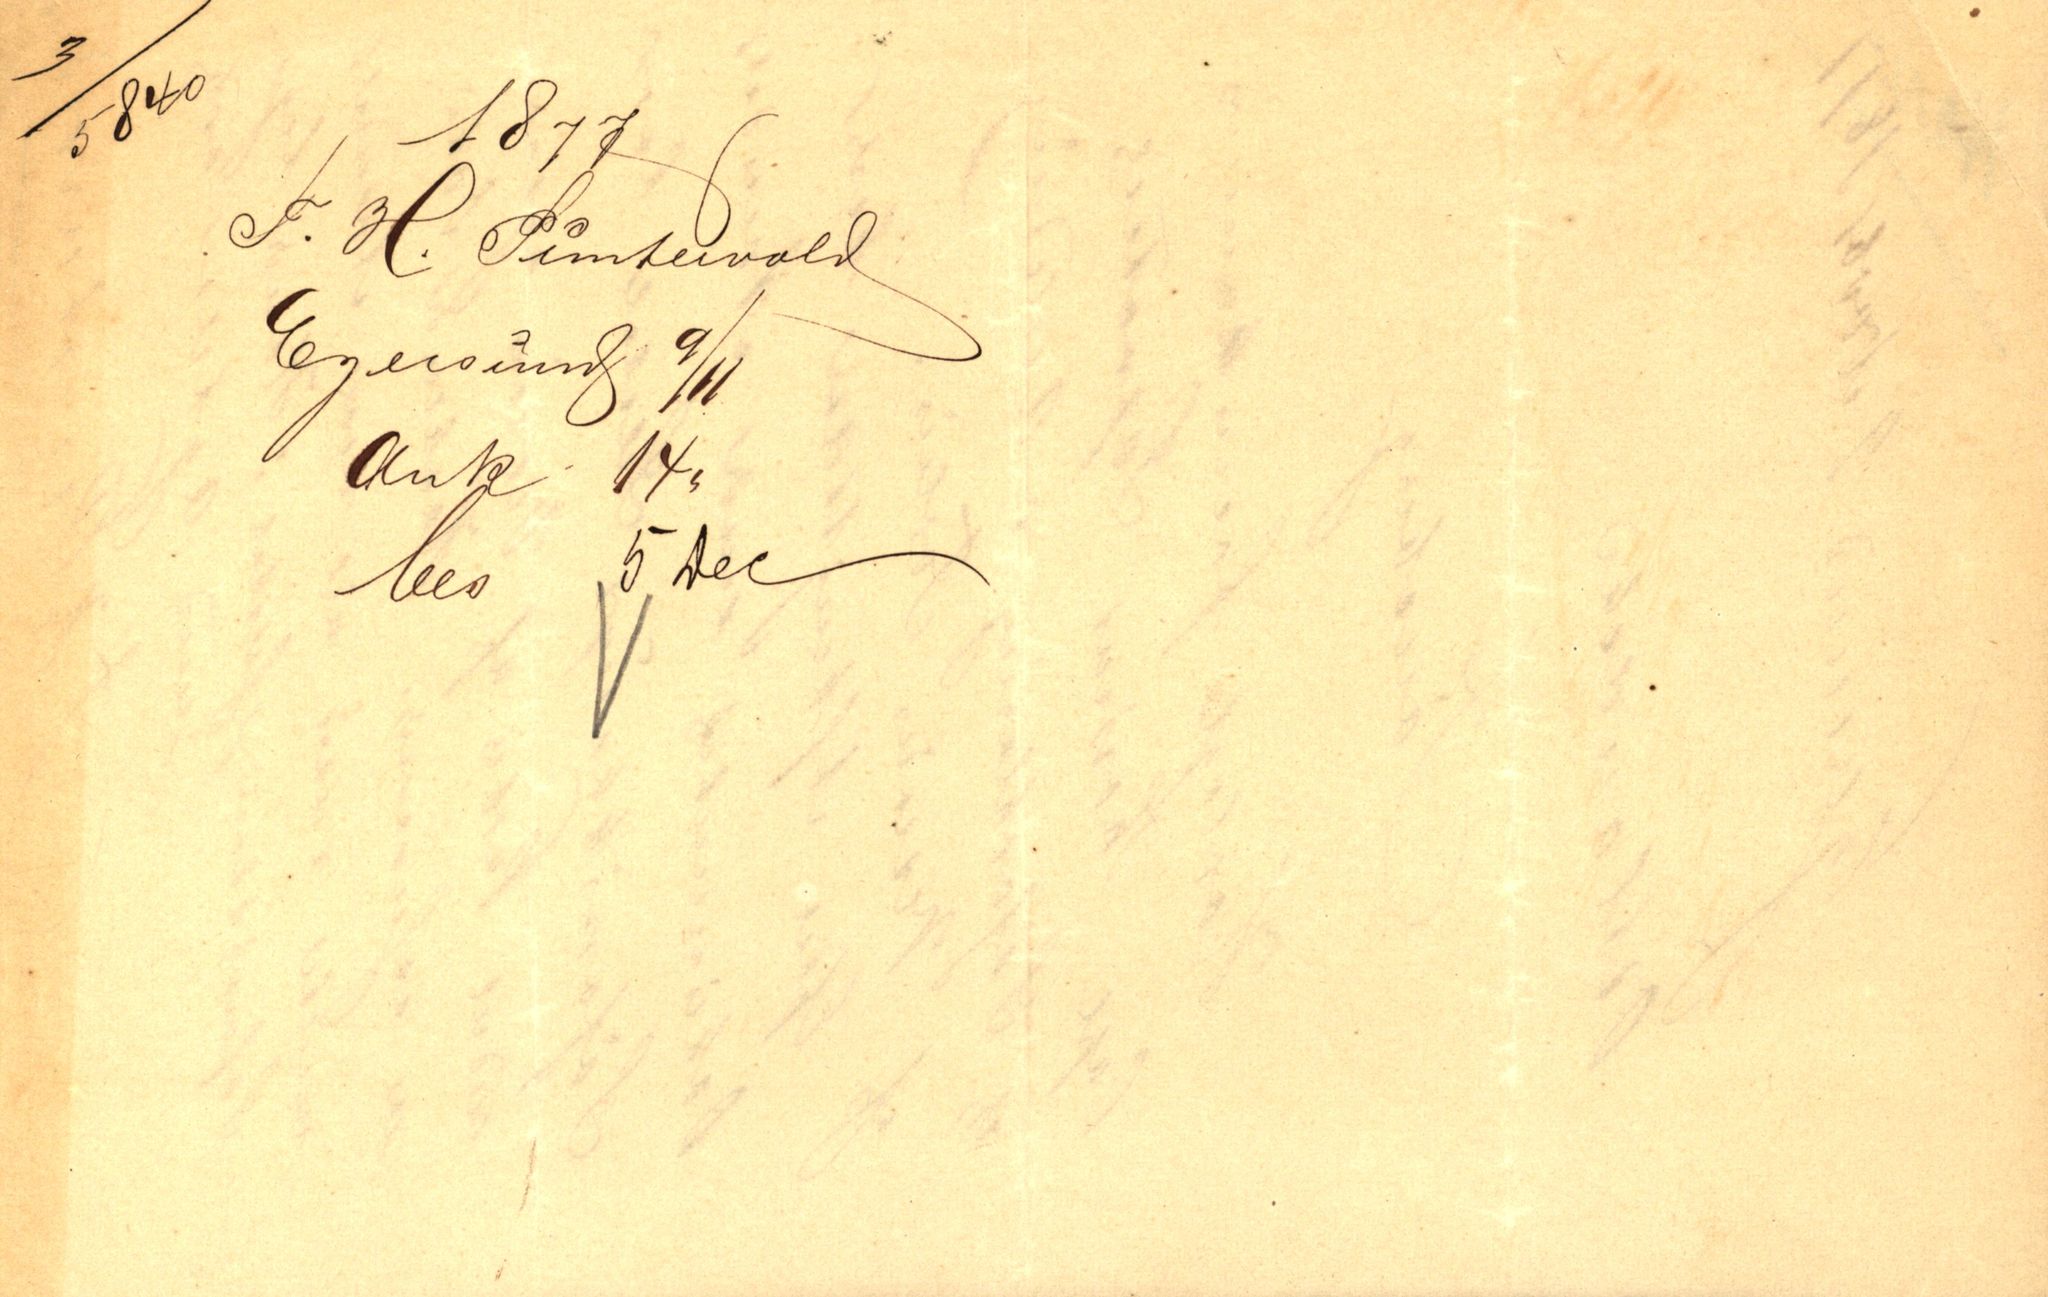 3/5840
1877
F. H. Püntervold
Egersund 9/11
Ank 14,
bes 5 Dec